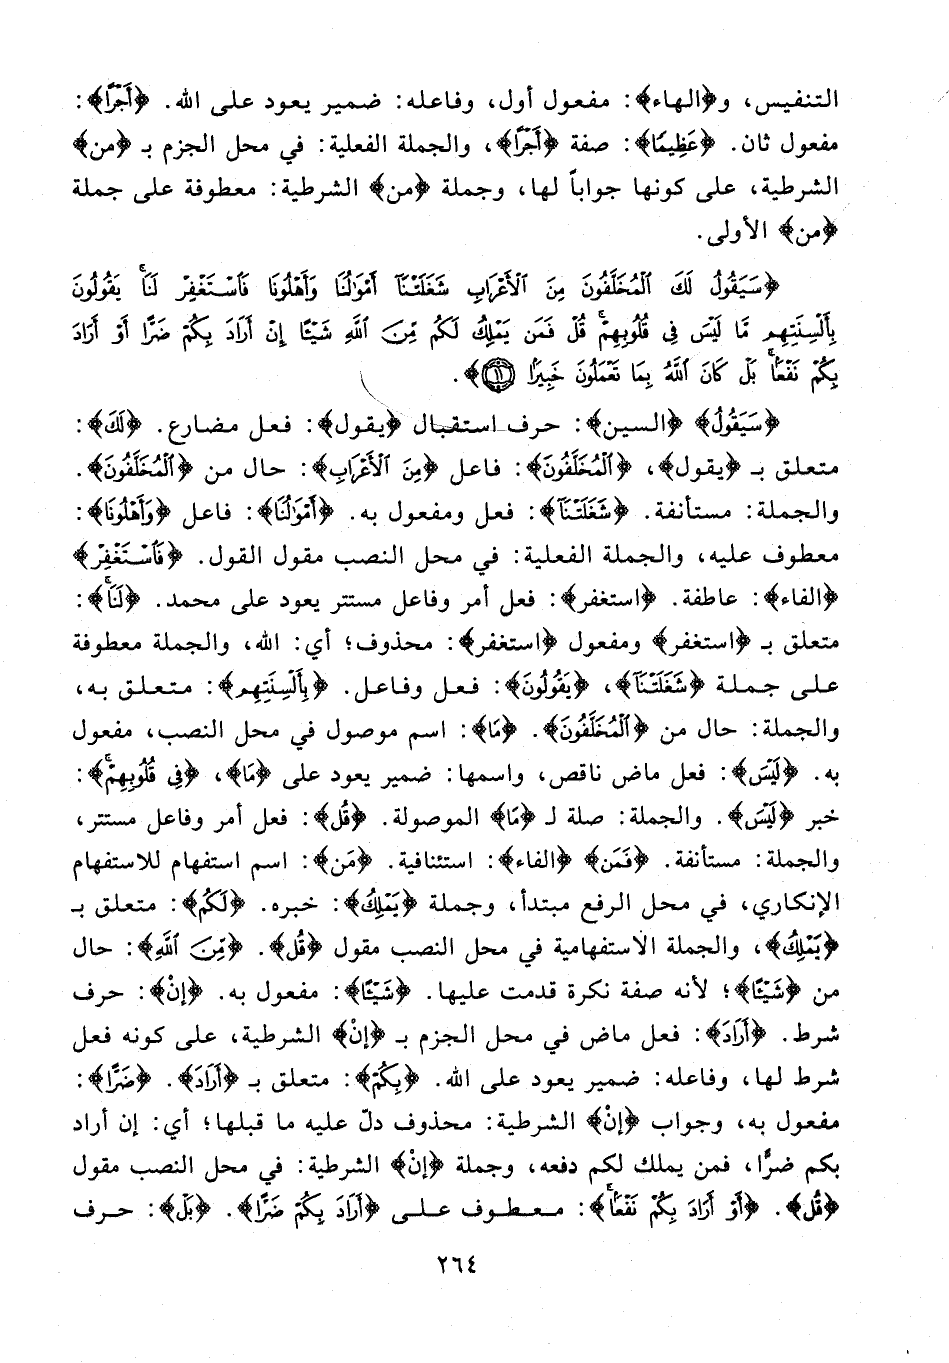 التنفيس، و﴿الهاء﴾: مفعول أول، وفاعله: ضمير يعود على الله. ﴿أَجْرًا﴾:
مفعول ثان. ﴿عَظِيمًا﴾: صفة ﴿أَجْرًا﴾، والجملة الفعلية: في محل الجزم بـ ﴿من﴾
الشرطية، على كونها جواباً لها، وجملة ﴿من﴾ الشرطية: معطوفة على جملة
﴿من﴾ الأولى.
﴿سَيَقُولُ لَكَ ٱلْمُخَلَّفُونَ مِنَ ٱلْأَعْرَابِ شَغَلَتْنَآ أَمْوَٰلُنَا وَأَهْلُونَا فَٱسْتَغْفِرْ لَنَاۚ يَقُولُونَ
بِأَلْسِنَتِهِم مَّا لَيْسَ فِى قُلُوبِهِمْۚ قُلْ فَمَن يَمْلِكُ لَكُم مِّنَ ٱللَّهِ شَيْـًٔا إِنْ أَرَادَ بِكُمْ ضَرًّا أَوْ أَرَادَ
بِكُمْ نَفْعًۢاۚ بَلْ كَانَ ٱللَّهُ بِمَا تَعْمَلُونَ خَبِيرًا ١١﴾.
﴿سَيَقُولُ﴾ ﴿السين﴾: حرف استقبال ﴿يقول﴾: فعل مضارع. ﴿لَكَ﴾:
متعلق بـ ﴿يقول﴾، ﴿ٱلْمُخَلَّفُونَ﴾: فاعل ﴿مِنَ ٱلْأَعْرَابِ﴾: حال من ﴿ٱلْمُخَلَّفُونَ﴾.
والجملة: مستأنفة. ﴿شَغَلَتْنَآ﴾: فعل ومفعول به. ﴿أَمْوَٰلُنَا﴾: فاعل ﴿وَأَهْلُونَا﴾:
معطوف عليه، والجملة الفعلية: في محل النصب مقول القول. ﴿فَٱسْتَغْفِرْ﴾
﴿الفاء﴾: عاطفة. ﴿استغفر﴾: فعل أمر وفاعل مستتر يعود على محمد. ﴿لَنَاۚ﴾:
متعلق بـ ﴿استغفر﴾ ومفعول ﴿استغفر﴾: محذوف؛ أي: الله، والجملة معطوفة
على جملة ﴿شَغَلَتْنَآ﴾، ﴿يَقُولُونَ﴾: فعل وفاعل. ﴿بِأَلْسِنَتِهِم﴾: متعلق به،
والجملة: حال من ﴿ٱلْمُخَلَّفُونَ﴾. ﴿مَّا﴾: اسم موصول في محل النصب، مفعول
به. ﴿لَيْسَ﴾: فعل ماض ناقص، واسمها: ضمير يعود على ﴿مَّا﴾، ﴿فِى قُلُوبِهِمْۚ﴾:
خبر ﴿لَيْسَ﴾. والجملة: صلة لـ ﴿مَّا﴾ الموصولة. ﴿قُل﴾: فعل أمر وفاعل مستتر،
والجملة: مستأنفة. ﴿فَمَن﴾ ﴿الفاء﴾: استئنافية. ﴿مَن﴾: اسم استفهام للاستفهام
الإنكاري، في محل الرفع مبتدأ، وجملة ﴿يَمْلِكُ﴾: خبره. ﴿لَكُم﴾: متعلق بـ
﴿يَمْلِكُ﴾، والجملة الاستفهامية في محل النصب مقول ﴿قُل﴾. ﴿مِّنَ ٱللَّهِ﴾: حال
من ﴿شَيْـًٔا﴾؛ لأنه صفة نكرة قدمت عليها. ﴿شَيْـًٔا﴾: مفعول به. ﴿إِنْ﴾: حرف
شرط. ﴿أَرَادَ﴾: فعل ماض في محل الجزم بـ ﴿إِنْ﴾ الشرطية، على كونه فعل
شرط لها، وفاعله: ضمير يعود على الله. ﴿بِكُمْ﴾: متعلق بـ ﴿أَرَادَ﴾. ﴿ضَرًّا﴾:
مفعول به، وجواب ﴿إِنْ﴾ الشرطية: محذوف دلّ عليه ما قبلها؛ أي: إن أراد
بكم ضرًّا، فمن يملك لكم دفعه، وجملة ﴿إِنْ﴾ الشرطية: في محل النصب مقول
﴿قُل﴾. ﴿أَوْ أَرَادَ بِكُمْ نَفْعًۢاۚ﴾: معطوف على ﴿أَرَادَ بِكُمْ ضَرًّا﴾. ﴿بَلْ﴾: حرف
٢٦٤